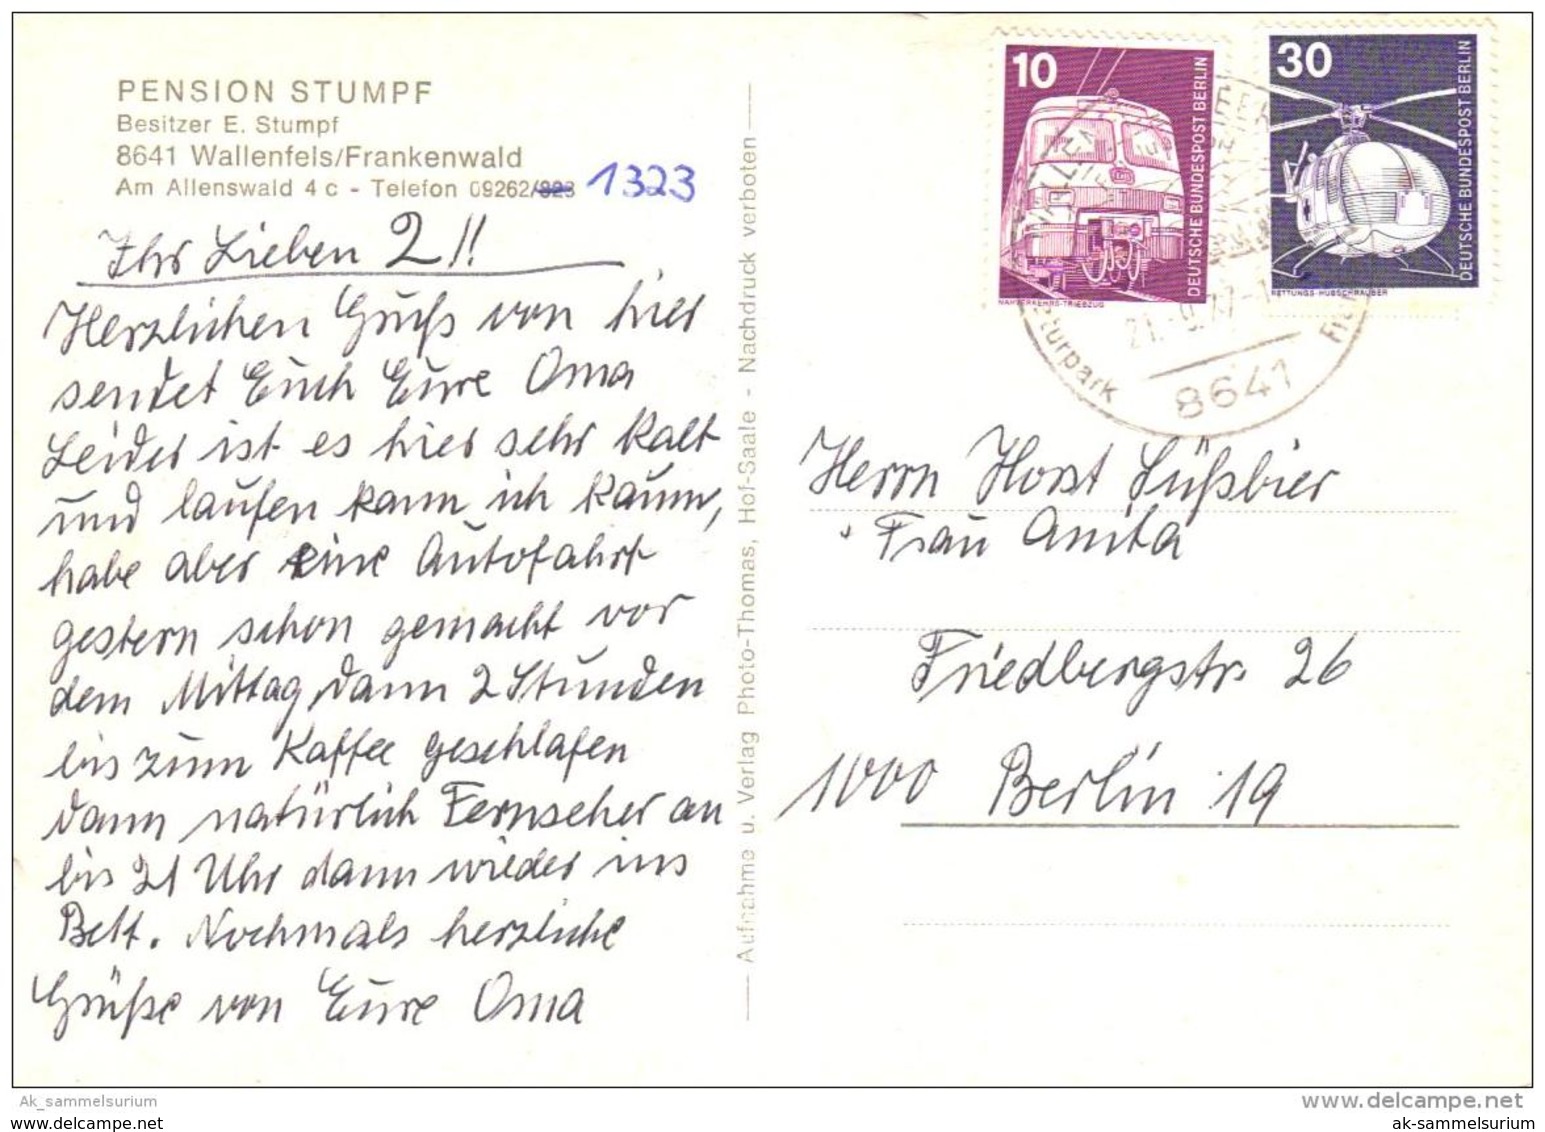 PENSION STUMPF
Besitzer E. Stumpf
8641 Wallenfels/Frankenwald
Am Allenswald 4 c - Telefon 09262/823 1323
Ihr Lieben 2!!
Herzlichen Gruß von hier
sendet Euch Eure Oma
Leider ist es hier sehr kalt
und laufen kann ich kaum,
habe aber eine Autofahrt
gestern schon gemacht vor
dem Mittag, dann 2 Stunden
bis zum Kaffee geschlafen
dann natürlich Fernseher an
bis 21 Uhr dann wieder ins
Bett. Nochmals herzliche
Grüße von Eure Oma
Aufnahme u. Verlag Photo-Thomas, Hof-Saale - Nachdruck verboten
10
DEUTSCHE BUNDESPOST BERLIN
NAHVERKEHRS-TRIEBZUG
30
DEUTSCHE BUNDESPOST BERLIN
RETTUNGS-HUBSCHRAUBER
21.-9.77
8641
Herrn Horst Süßbier
Frau Anita
Friedbergstr. 26
1000 Berlin 19
Ak_sammelsurium
www.delcampe.net
www.ak-sammelsurium.com
ak-sammelsurium